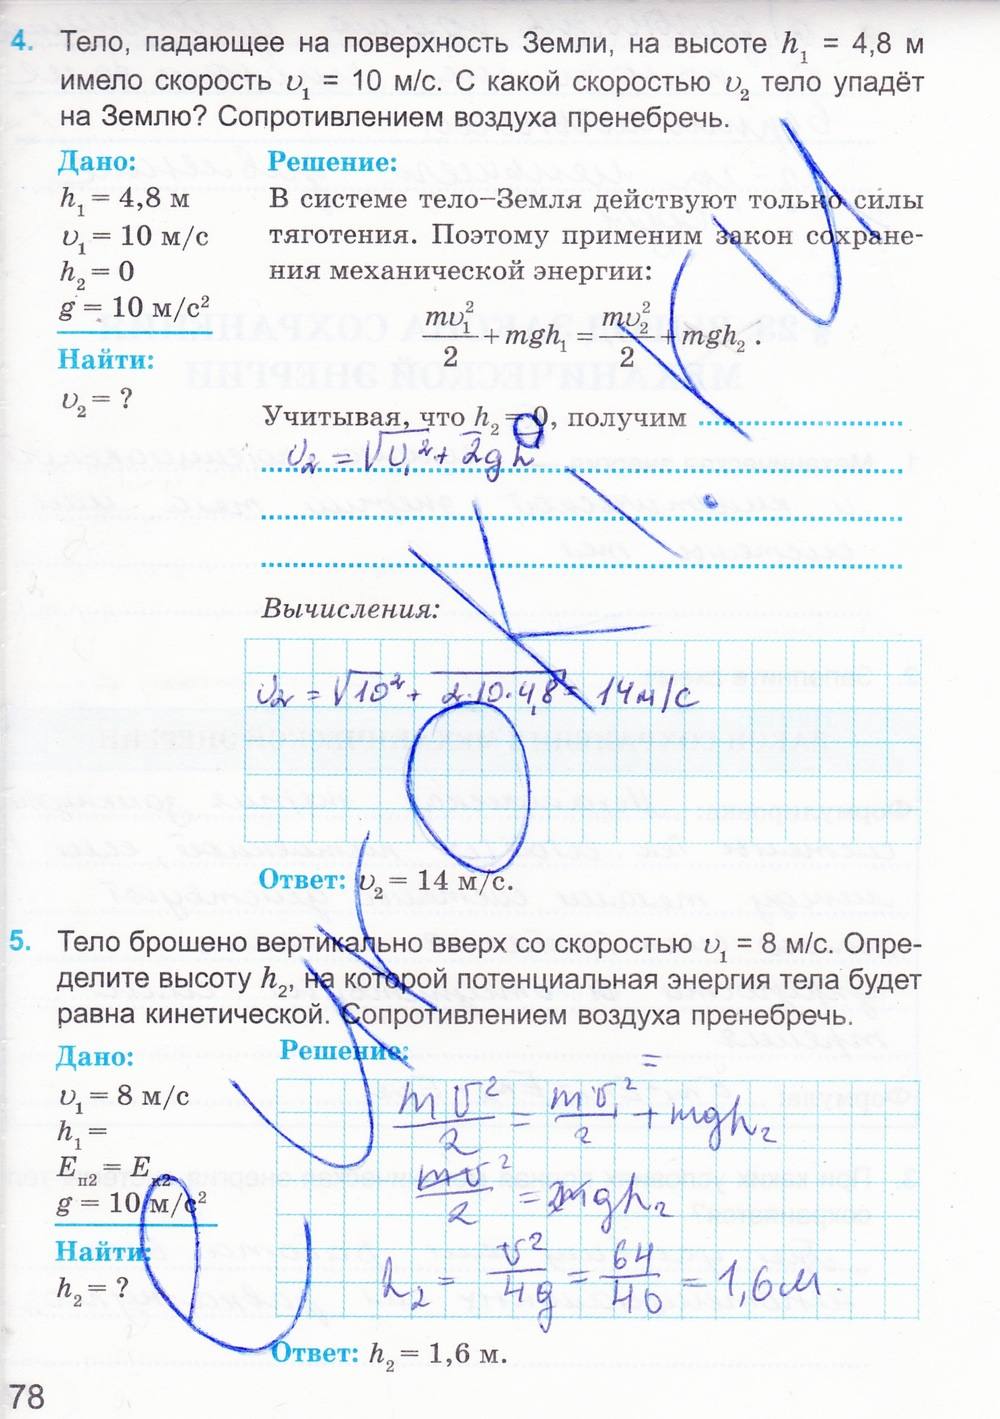 4. Тело, падающее на поверхность Земли, на высоте h₁ = 4,8 м
имело скорость υ₁ = 10 м/с. С какой скоростью υ₂ тело упадёт
на Землю? Сопротивлением воздуха пренебречь.
Дано:
h₁ = 4,8 м
υ₁ = 10 м/с
h₂ = 0
g = 10 м/с²
Найти:
υ₂ = ?
Решение:
В системе тело–Земля действуют только силы
тяготения. Поэтому применим закон сохране-
ния механической энергии:
mυ₁²/2 + mgh₁ = mυ₂²/2 + mgh₂ .
Учитывая, что h₂ = 0, получим
υ₂ = √υ₁² + 2gh
Вычисления:
υ₂ = √10² + 2·10·4,8 = 14 м/с
Ответ: υ₂ = 14 м/с.
5. Тело брошено вертикально вверх со скоростью υ₁ = 8 м/с. Опре-
делите высоту h₂, на которой потенциальная энергия тела будет
равна кинетической. Сопротивлением воздуха пренебречь.
Дано:
υ₁ = 8 м/с
h₁ =
Eп2 = Eк2
g = 10 м/с²
Найти:
h₂ = ?
Решение:
=
mυ²/2 = mυ₁²/2 + mgh₂
mυ²/2 = 2mgh₂
h₂ = υ²/4g = 64/40 = 1,6 м
Ответ: h₂ = 1,6 м.
78